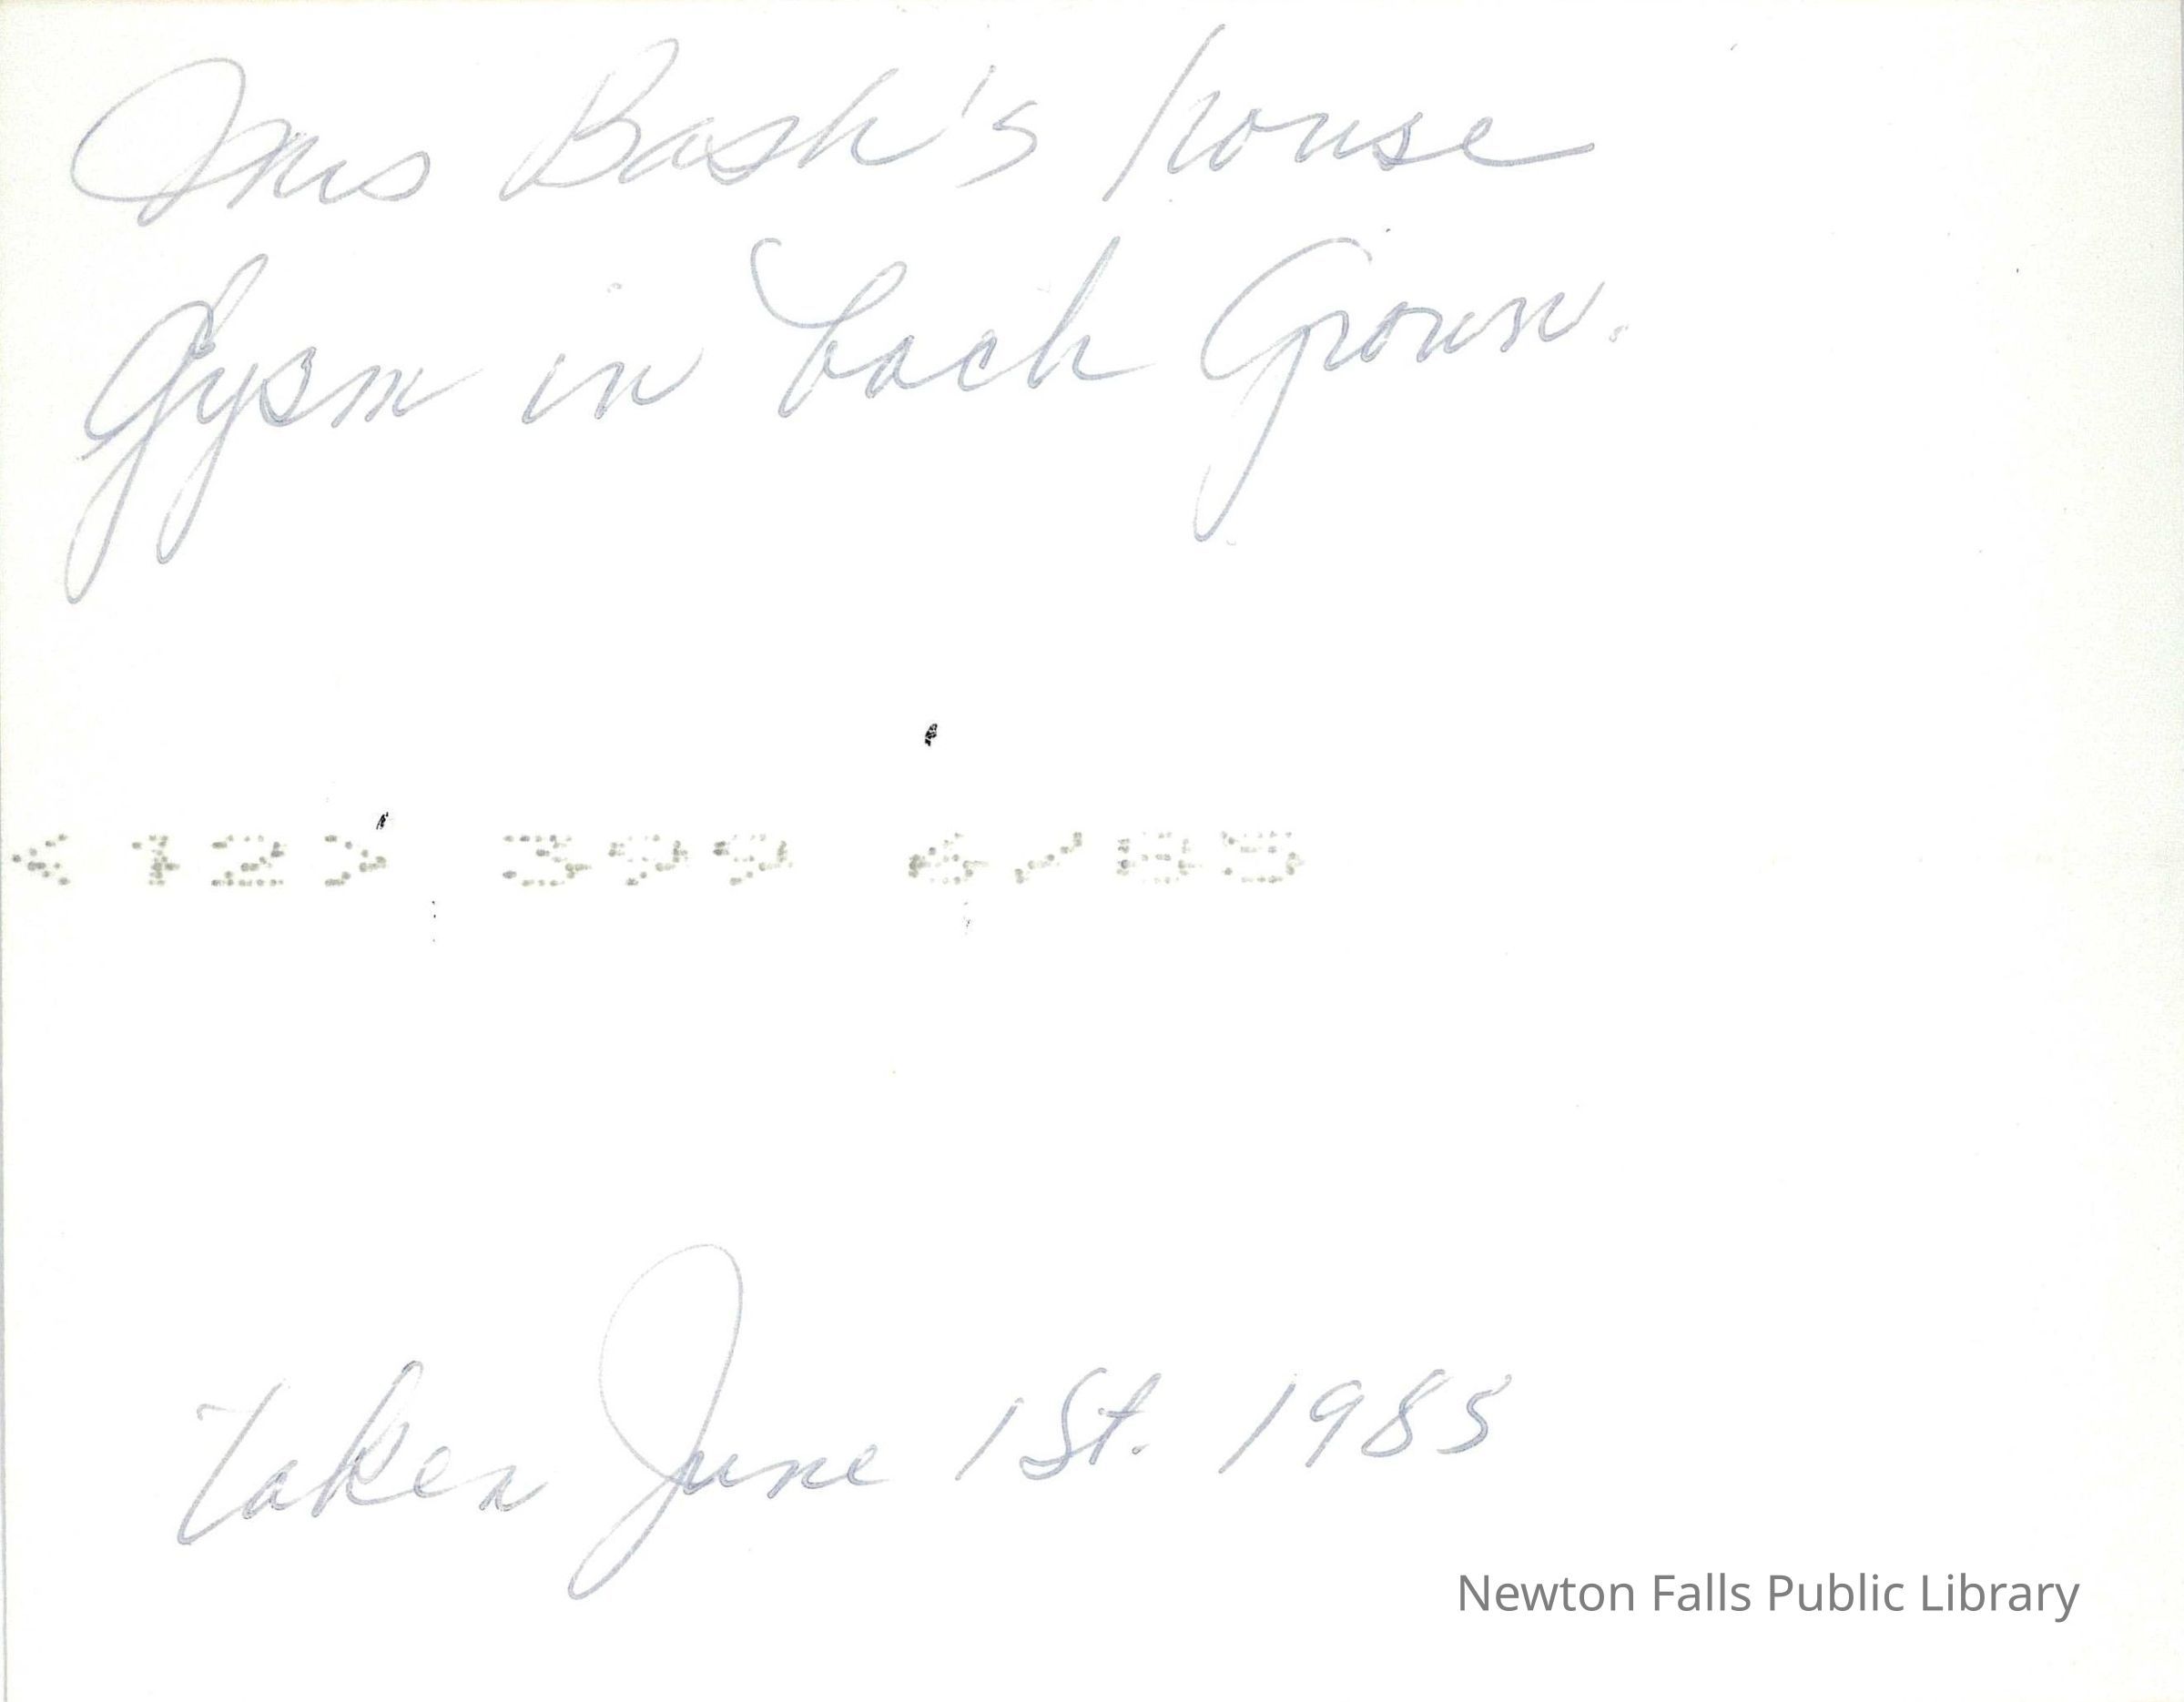 Mrs Bash's house
Gysm in back Groun.
< 12> 399 6/85
Taken June 1St. 1985
Newton Falls Public Library